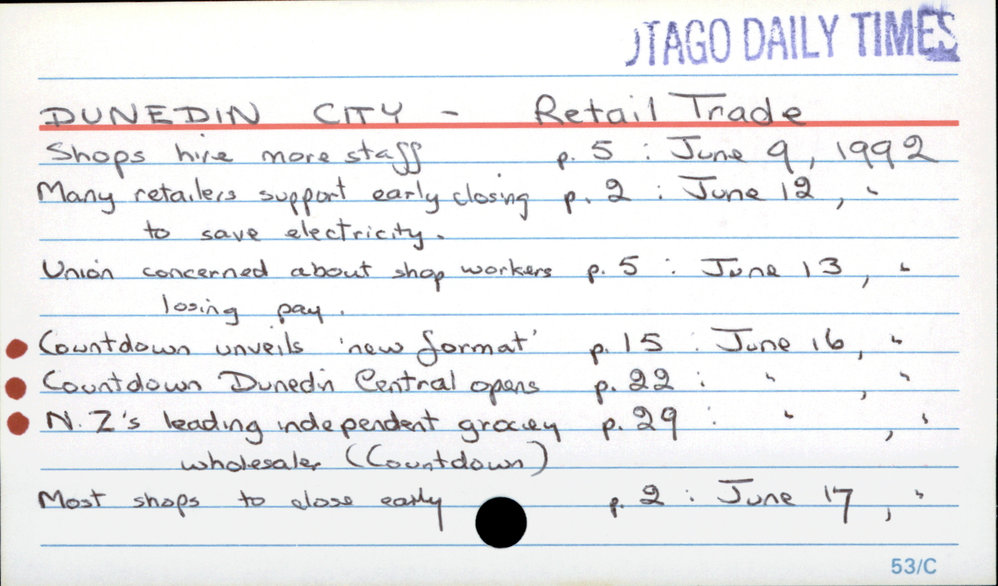 OTAGO DAILY TIMES
DUNEDIN CITY - Retail Trade
Shops hire more staff p. 5 : June 9, 1992
Many retailers support early closing p. 2 : June 12, "
to save electricity.
Union concerned about shop workers p. 5 : June 13, "
losing pay.
Countdown unveils 'new format' p. 15 : June 16, "
Countdown Dunedin Central opens p. 22 : " , "
N.Z's leading independent grocery p. 29 : " , "
wholesaler (Countdown)
Most shops to close early p. 2 : June 17, "
53/C